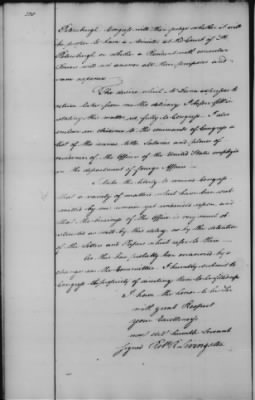 220
Petersburgh. Congress will then judge whether it will
be proper to have a Minister at the Court of St.
Petersburgh or whether a Resident with
Powers will not answer all their purposes and
expence
The desire which Mr. Dana expresses to
return takes from me the delicacy I should feel in
stating this matter so fully to Congress. I also
enclose in obedience to the commands of Congress a
list of the names Salaries and places of
residence of the Officers of the United States employed
in the department of foreign Affairs
I take the liberty to remind Congress
that a variety of matters which have been
mitted by me remain yet unacted upon and
that the business of the Office is very much
as well by this delay as by the detention
of the Letters and Papers which refer to them
As this has probably been occasioned by
changes in the Committees, I humbly submit to
Congress the propriety of
I have the honor to be Sir
with great Respect
your Excellency's
most obt humble Servant
signed Robt R Livingston